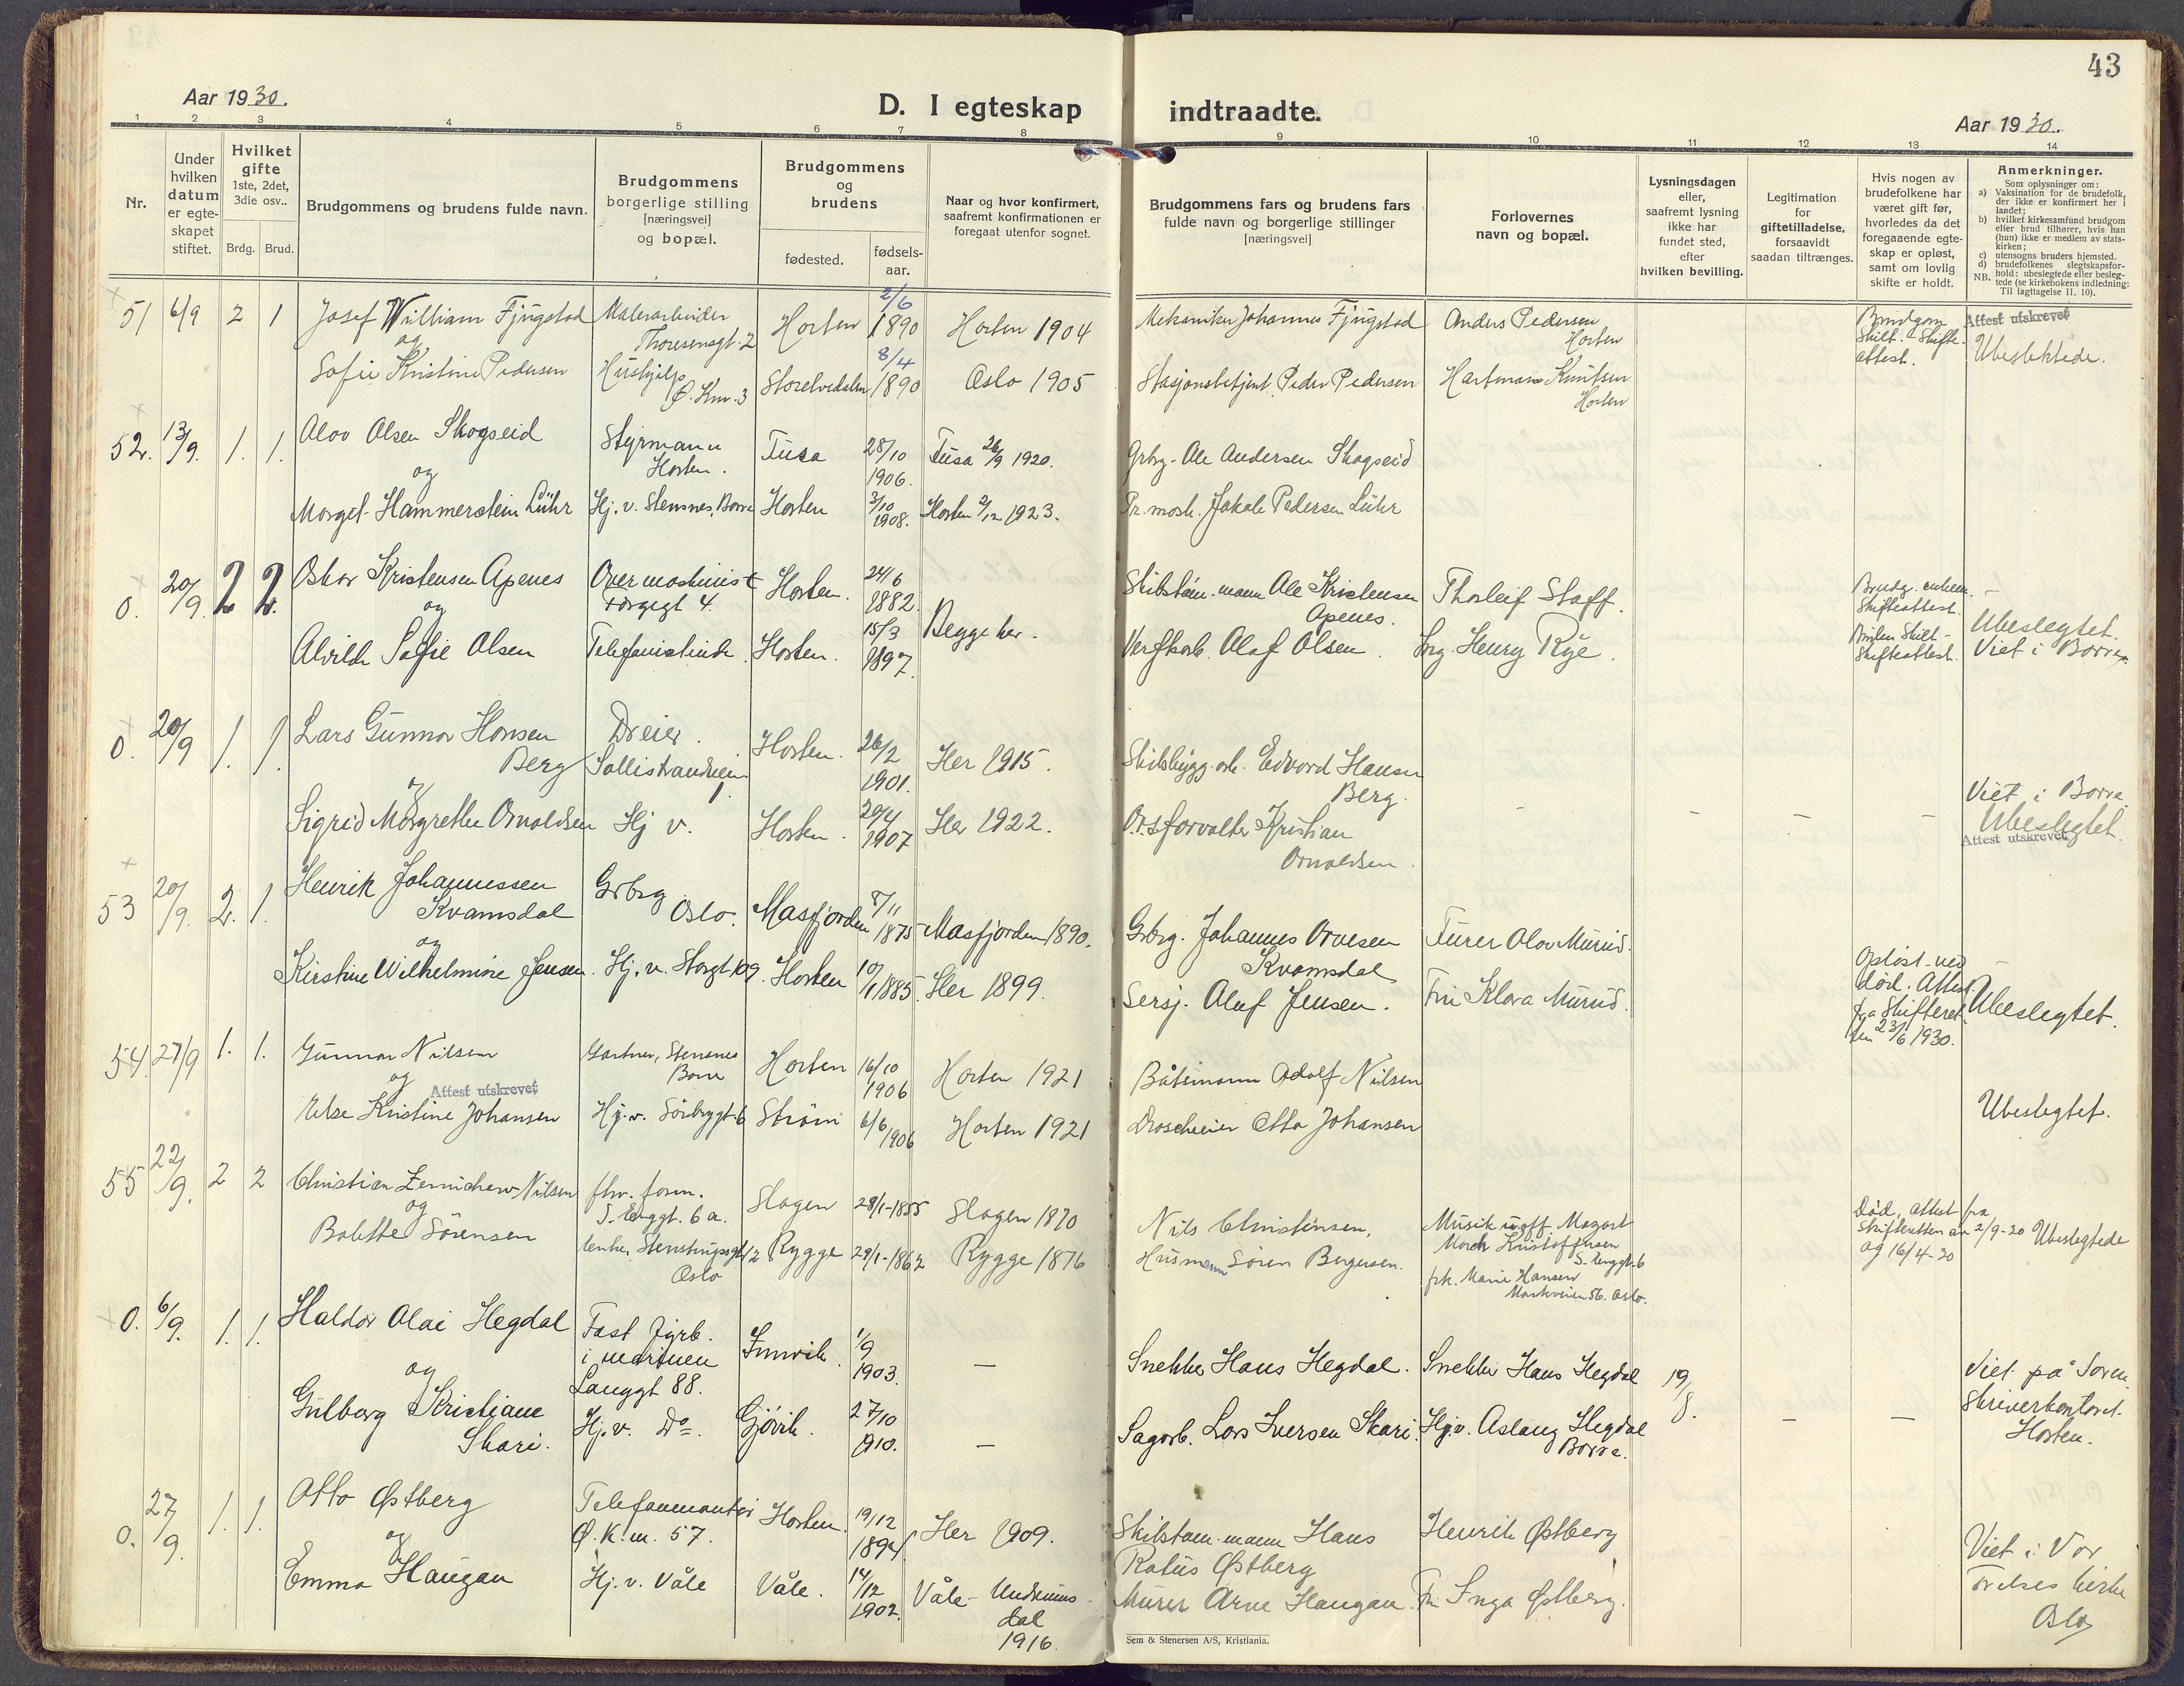 43
Aar 1930.
D. I egteskap indtraadte.
Aar 1930.
1 2 3 4 5 6 7 8 9 10 11 12 13 14
Nr.
Under hvilken datum er egte-skapet stiftet.
Hvilket gifte 1ste, 2det, 3die osv..
Brdg. Brud.
Brudgommens og brudens fulde navn.
Brudgommens borgerlige stilling [næringsvei] og bopæl.
Brudgommens og brudens
fødested.
fødsels-aar.
Naar og hvor konfirmert, saafremt konfirmationen er foregaat utenfor sognet.
Brudgommens fars og brudens fars fulde navn og borgerlige stillinger [næringsvei]
Forlovernes navn og bopæl.
Lysningsdagen eller, saafremt lysning ikke har fundet sted, efter hvilken bevilling.
Legitimation for giftetilladelse, forsaavidt saadan tiltrænges.
Hvis nogen av brudefolkene har været gift før, hvorledes da det foregaaende egte-skap er opløst, samt om lovlig skifte er holdt.
Anmerkninger.
Som oplysninger om:
a) Vaksination for de brudefolk, der ikke er konfirmert her i landet;
b) hvilket kirkesamfund brudgom eller brud tilhører, hvis han (hun) ikke er medlem av stats-kirken;
c) utensogns bruders hjemsted.
d) brudefolkenes slegtskapsfor-hold: ubeslegtede eller besleg-tede (se kirkebokens indledning: Til iagttagelse II. 10).
NB.
51 6/9 2 1 Josef William Fjugstad Malerarbeider Thoresensgt. 2 Horten 2/6 1890 Horten 1904 Mekaniker Johannes Fjugstad Anders Pedersen Horten Brudgom Skilt. Skifte-attest. Attest utskrevet
og
Sofie Kristine Pedersen Hushjelp Ø. Km. 3 8/4 1890 Oslo 1905 Stasjonsbetjent Peder Pedersen Hartman Knutsen Horten Ubeslektede.
52. 13/9. 1. 1. Alov Olsen Skogseid Styrmann Horten. Fusa 28/10 1906. Fusa 26/9 1920. Grbr. Ole Andersen Skogseid
og
Margit Hammerstein Lühr Hj. v. Stensnes, Borre Horten 3/10 1908. Horten 2/12 1923. Jakob Pedersen Lühr
0. 20/9. 2 2. Oskar Kristensen Apenes Overmaskinist 4. Horten. 24/6 1882. Begge her. Skibstøm. mann Ole Kristensen Apenes. Thorleif Staff. Skifteattest. –
og
Alvilde Sofie Olsen Telefonistinde. Horten. 15/3 1897. Verftsarb. Olaf Olsen. Henry Rye. Skilt – Skifteattest. Ubeslegtet. Viet i Borre.
0. 20/9 1. 1. Lars Gunnar Hansen Berg Dreier. Sollistrandveien 1. Horten. 26/2 1901. Her 1915. Skibsbygg. arb. Edvard Hansen Berg.
og
Sigrid Margrethe Arnoldsen Hj v. Horten. 20/4 1907 Her 1922. Kristian Arnoldsen. – – – – Viet i Borre. Ubeslegtet. Attest utskrevet
53 20/9. 2. 1. Henrik Johannessen Kvamsdal Grbrg Oslo. Masfjorden 8/11 1875 Masfjorden 1890. Grbrg. Johannes Arnesen Kvamsdal Murer Olav Murud.
og
Kirstine Wilhelmine Jensen. Hj. v. Storgt 109. Horten 10/1 1885. Her 1899. Sersj. Oluf Jensen. Fru Klara Murud. Opløst ved død. Attest fra Skifteret. den 23/6 1930. – Ubeslegtet.
54. 27/9 1. 1. Gunnar Nilsen Gartner, Stensnes Borre Horten 16/10 1906 Horten 1921 Båtsmann Adolf Nilsen
og Attest utskrevet
Else Kristine Johansen Hj. v. Sørbygt 6 Strøm 6/6 1906 Horten 1921 Droscheeier Otto Johansen Ubeslegtet.
55 22/9. 2 2 Christian Nilsen fhv. form. 6 a. Slagen 28/1-1855 Slagen 1870 Nils Christensen. Musik uoff. Mozart Kristoffersen
og
Bolette Sørensen Stenstrupsgt 12 Oslo Rygge 29/1-1862 Rygge 1876 Husmann Søren Børgersen. frk. Marie Hansen Markveien 56. Oslo. Død, attest fra Skifteretten av 2/9-30 og 16/4-30 Ubeslegtede
0. 6/9. 1. 1. Haldor Olai Hegdal Fast fyrb. i marinen Langgt 88. Innvik. 1/9 1903. – Snekker Hans Hegdal. Snekker Hans Hegdal 19/8.
og
Gulborg Kristiane Skari. Hj. v. Do. Gjøvik. 27/10 1910. – Sagarb. Lars Iversen Skari. Hj. v. Aslaug Hegdal Borre. – – Viet på Soren-skriverkontoret. Horten.
0. 27/9. 1. 1. Otto Østberg Telefonmontør Ø. K. m. 57. Horten. 19/12 1894 Her 1909. Skibstøm. mann Hans Ratius Østberg Henrik Østberg
og
Emma Haugan Hj. v. Våle Våle. 14/12 1902. Våle – Undrums-dal 1916. Murer Arne Haugan Fr. Inga Østberg. Viet i Vår Frelses kirke Oslo
Sem & Stenersen A/S, Kristiania.